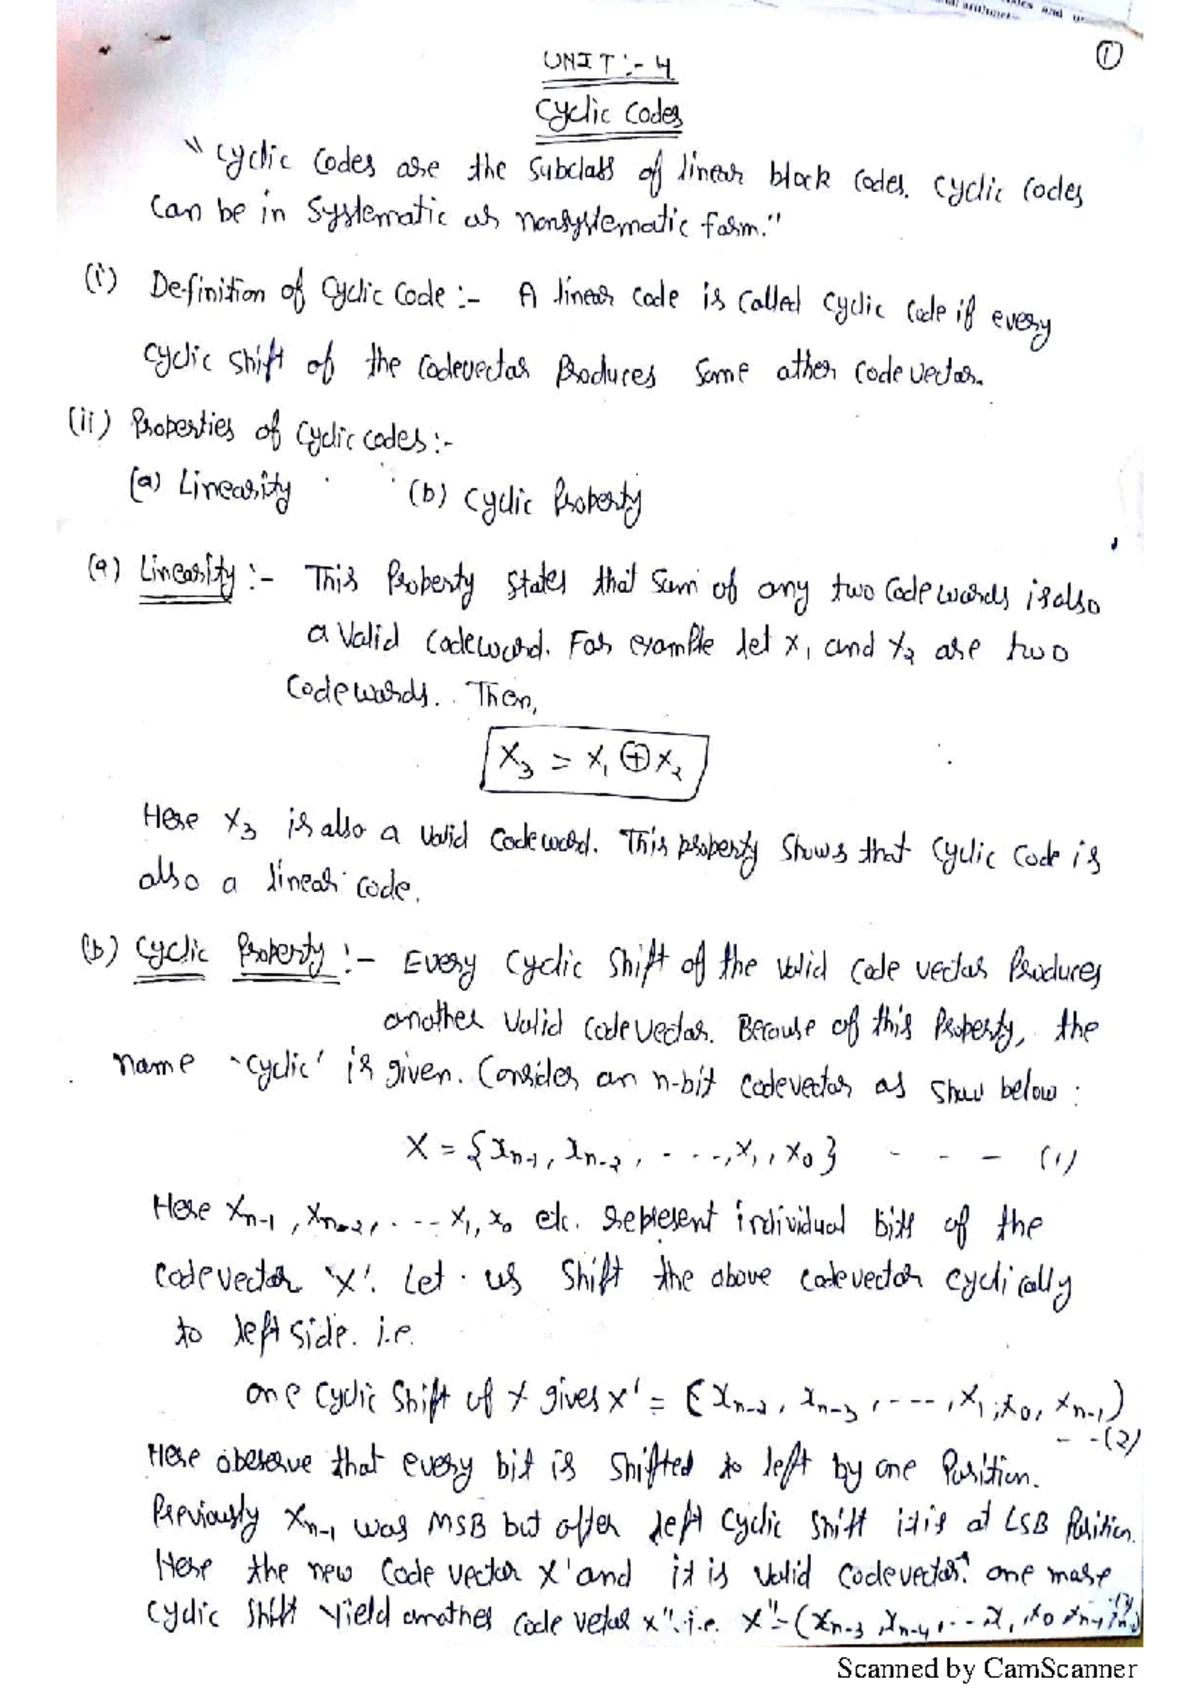 ①
UNIT :- 4
Cyclic Codes
"Cyclic Codes are the Subclass of linear block codes. Cyclic Codes
Can be in Systematic or nonsystematic form."
(i) Definition of Cyclic Code :- A linear code is called cyclic code if every
Cyclic Shift of the codevector Produces Some other codevector.
(ii) Properties of Cyclic codes :-
(a) Linearity (b) Cyclic Property
(a) Linearity :- This Property States that Sum of any two Codewords is also
a Valid Codeword. For example let x₁ and x₂ are two
Codewords. Then,
X₃ = X₁ ⊕ X₂
Here X₃ is also a valid Codeword. This property Shows that Cyclic Code is
also a linear code.
(b) Cyclic Property :- Every Cyclic Shift of the valid Code vector Produces
another Valid codevector. Because of this Property, the
name 'cyclic' is given. Consider an n-bit codevector as below :
X = {xₙ₋₁, xₙ₋₂, - - - -, x₁, x₀} - - - (1)
Here xₙ₋₁, xₙ₋₂, - - - x₁, x₀ etc. represent individual bits of the
codevector 'X'. Let us Shift the above codevector cyclically
to left side. i.e.
one Cyclic Shift of X gives X' = (xₙ₋₂, xₙ₋₃, - - - -, x₁, x₀, xₙ₋₁)
- - (2)
Here observe that every bit is Shifted to left by one Position.
Previously xₙ₋₁ was MSB but after left Cyclic Shift it is at LSB Position.
Here the new Code vector X' and it is Valid Codevector. one more
Cyclic Shift Yield another code vector X". i.e. X" = (xₙ₋₃, xₙ₋₄, - - x₁, x₀ xₙ₋₁
Scanned by CamScanner